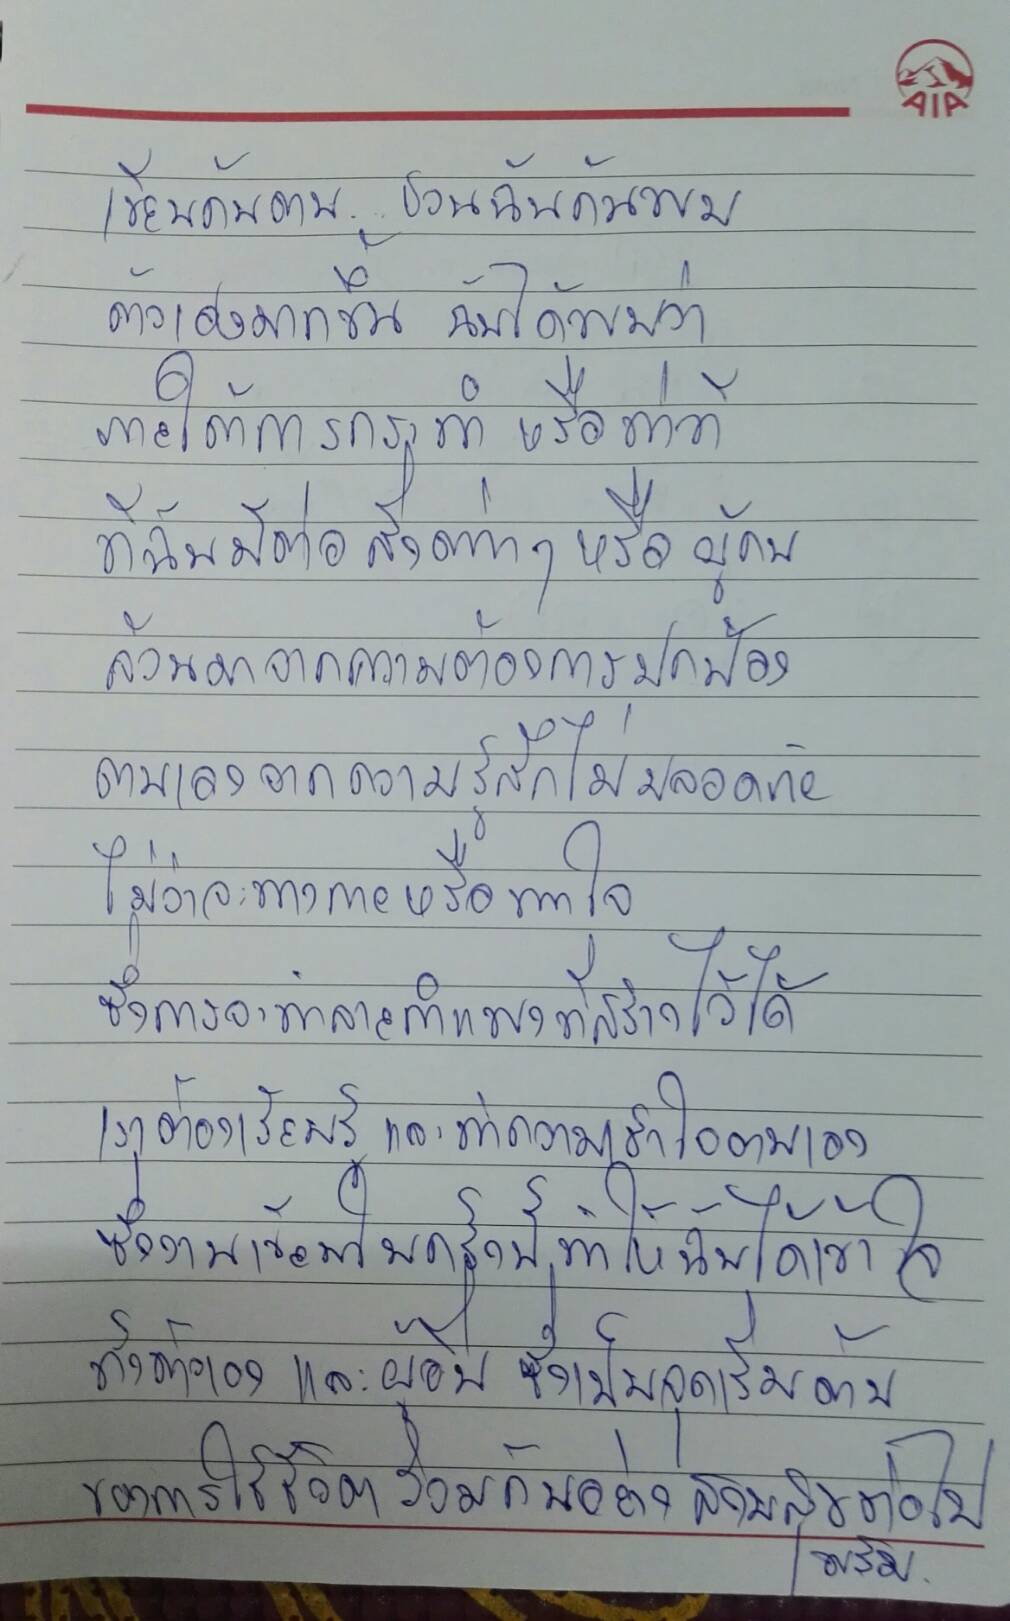 AIA
เขียนค้นตน.. ชวนฉันค้นพบ
ตัวเองมากขึ้น ฉันได้พบว่า
ภายใต้การกระทำ หรือท่าที
ที่ฉันมีต่อ สิ่งต่างๆ หรือ ผู้คน
ล้วนมาจากความต้องการปกป้อง
ตนเองจากความรู้สึกไม่ปลอดภัย
ไม่ว่าจะทางกายหรือทางใจ
ซึ่งการจะทำลายกำแพงที่สร้างไว้ได้
เราต้องเรียนรู้ และทำความเข้าใจตนเอง
ซึ่งงานเขียนในครั้งนี้ ทำให้ฉันได้เข้าใจ
ทั้งตัวเอง และผู้อื่น ซึ่งเป็นจุดเริ่มต้น
ของการใช้ชีวิต ร่วมกันอย่าง สงบสุขต่อไป